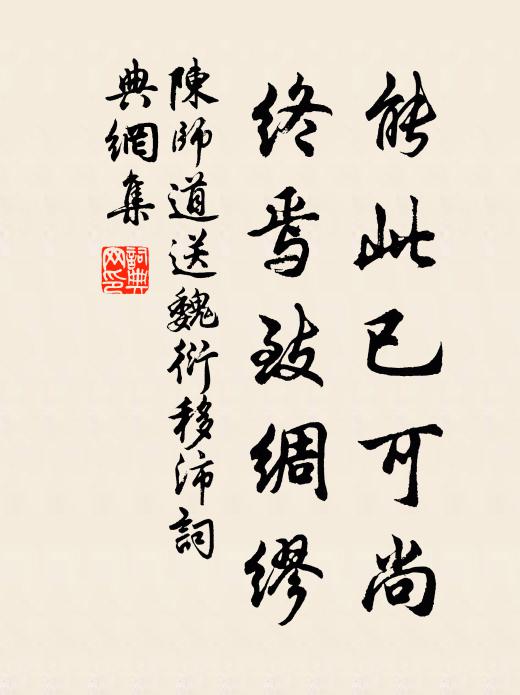 能此已可尚
終焉致綢繆
陳師道送魏衍移沛詞
典網集
詞典網印